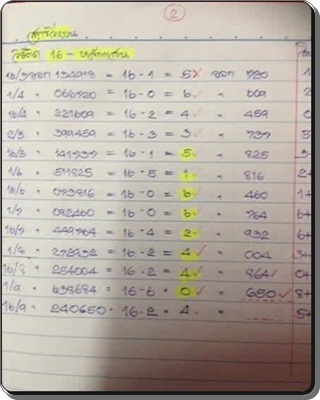 2
สูตรวิ่งบน
สถิติ 16 - หลักแสน
16/3 ออก 134918 = 16 - 1 = 5 x ออก 720
1/4 " 066720 = 16 - 0 = 6 " 609
16/4 " 221609 = 16 - 2 = 4 " 459
2/5 " 399459 = 16 - 3 = 3 " 737
16/5 " 141737 = 16 - 1 = 5 " 825
1/6 " 511825 = 16 - 5 = 1 ✓ " 816
16/6 " 073816 = 16 - 0 = 6 ✓ " 460
1/7 " 082460 = 16 - 0 = 6 ✓ " 764
16/7 " 449764 = 16 - 4 = 2 ✓ " 932
1/8 " 272932 = 16 - 2 = 4 ✓ " 004
16/8 " 254004 = 16 - 2 = 4 ✓ " 864
1/9 " 638684 = 16 - 6 = 0 ✓ " 650 ✓
16/9 " 240650 = 16 - 2 = 4